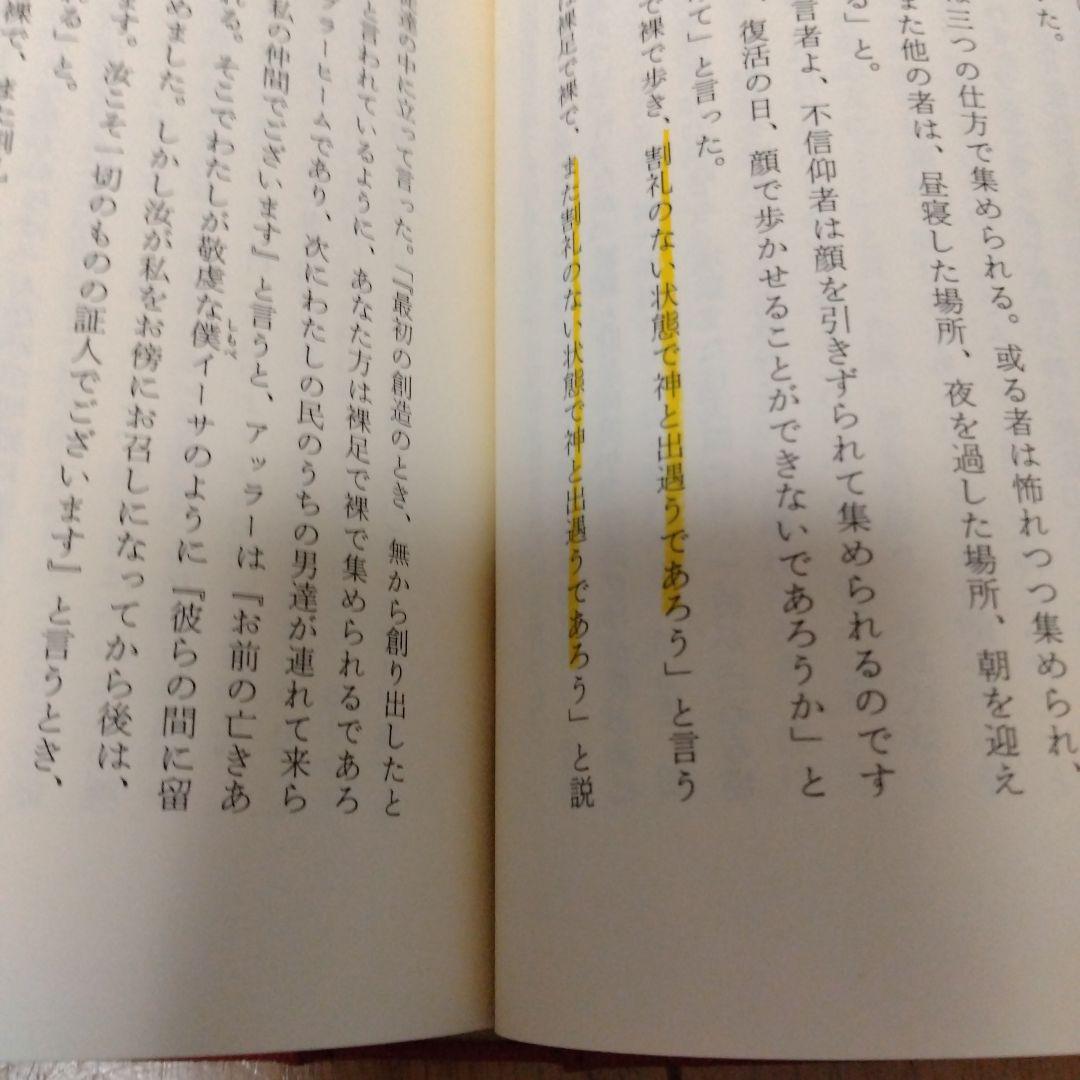 た。
は三つの仕方で集められる。或る者は怖れつつ集められ、
また他の者は、昼寝した場所、夜を過した場所、朝を迎え
る」と。
言者よ、不信仰者は顔を引きずられて集められるのです
、復活の日、顔で歩かせることができないであろうか」と
て」と言った。
で裸で歩き、割礼のない状態で神と出遇うであろう」と言う
は裸足で裸で、また割礼のない状態で神と出遇うであろう」と説
達の中に立って言った。「『最初の創造のとき、無から創り出したと
と言われているように、あなた方は裸足で裸で集められるであろ
ラーヒームであり、次にわたしの民のうちの男達が連れて来ら
私の仲間でございます』と言うと、アッラーは『お前の亡きあ
れる。そこでわたしが敬虔な僕イーサのように『彼らの間に留
しもべ
めました。しかし汝が私をお傍にお召しになってから後は、
ます。汝こそ一切のものの証人でございます』と言うとき、
る」と。
裸で、また割礼